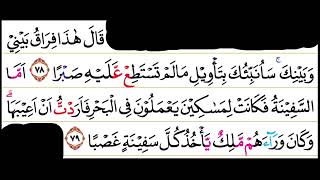 قَالَ هٰذَا فِرَاقُ بَيْنِيْ
وَبَيْنِكَۚ سَاُنَبِّئُكَ بِتَأْوِيْلِ مَا لَمْ تَسْتَطِعْ عَّلَيْهِ صَبْرًا ۝٧٨ اَمَّا
السَّفِيْنَةُ فَكَانَتْ لِمَسٰكِيْنَ يَعْمَلُوْنَ فِى الْبَحْرِ فَاَرَدْتُّ اَنْ اَعِيْبَهَاۗ
وَكَانَ وَرَاۤءَهُمْ مَّلِكٌ يَّأْخُذُ كُلَّ سَفِيْنَةٍ غَصْبًا ۝٧٩